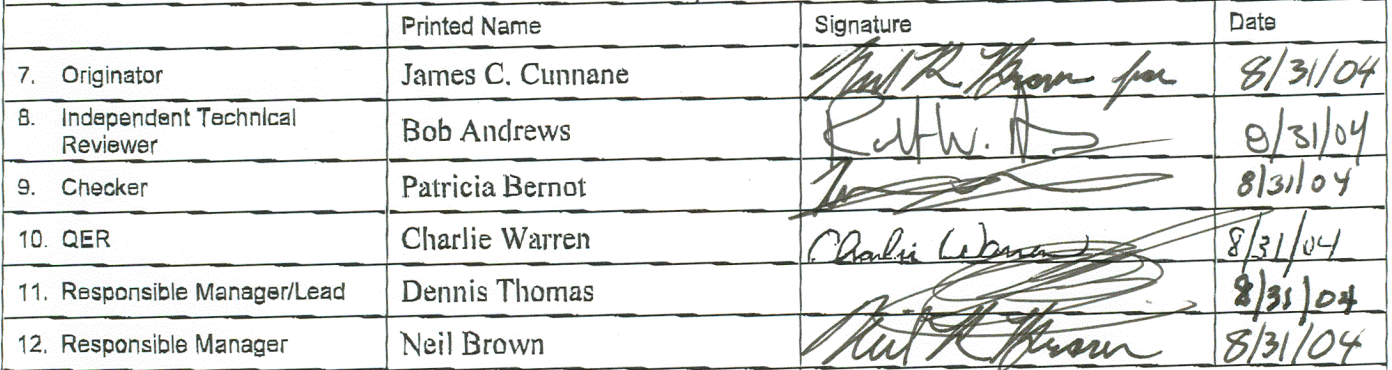 Printed Name Signature Date
7. Originator James C. Cunnane Neil R Brown for 8/31/04
8. Independent Technical Reviewer Bob Andrews Robt W. A 8/31/04
9. Checker Patricia Bernot 8/31/04
10. QER Charlie Warren Charlie Warren 8/31/04
11. Responsible Manager/Lead Dennis Thomas 8/31/04
12. Responsible Manager Neil Brown Neil R Brown 8/31/04